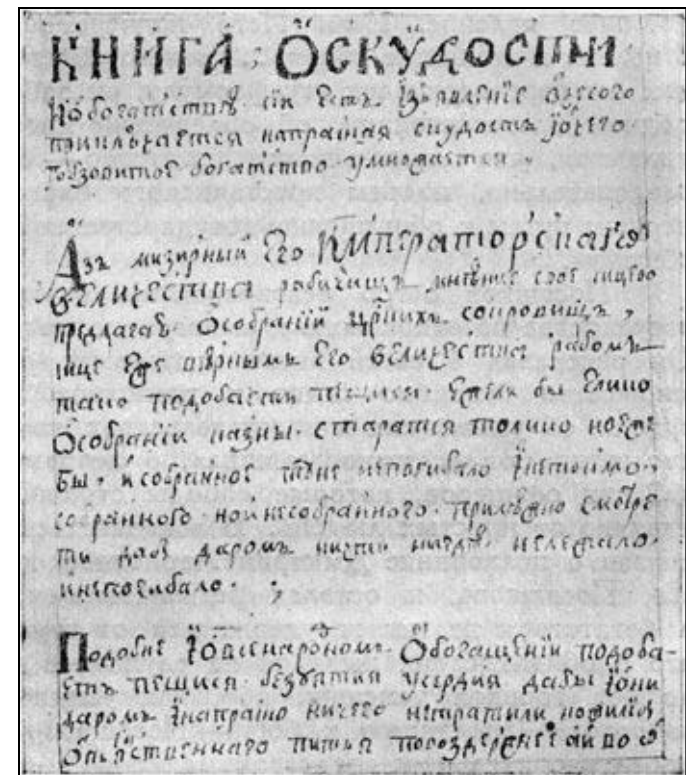 КНИГА, ОСКУДОСТИ
иѻбогатствѣ сіѧ есть. Изъявленіе ѿчесого
приключается напрасная скудость, иѿчего
гобзовитое богатство умножается.
Азъ мизирный его ИМПЕРАТОРСКАГѠ
ВЕЛИЧЕСТВА рабичищъ мнѣние свое сицево
предлагаѧ Особраніи црⷭ҇кихъ сокровищъ,
еже вѣрнымъ его величества рабомъ
тако подобаетъ пещися. Ежели бы елико
Особраніи казны старатися толико иоеже
бы. и собранное тꙋне непогибало инетокмо
собранного ноинесобранного. прилѣжно смотре
ти дабы даромъ ничто нигдѣ. нележало.
инепогибало.
Подобне иѻвсенародномъ Обогащеніи подоба-
етъ пещися безъятия усердия дабы иѻни
даромъ инапрасно ничего нетратили ножилиб
ѿпьянственнаго питья повоздержнее аи во ѻ